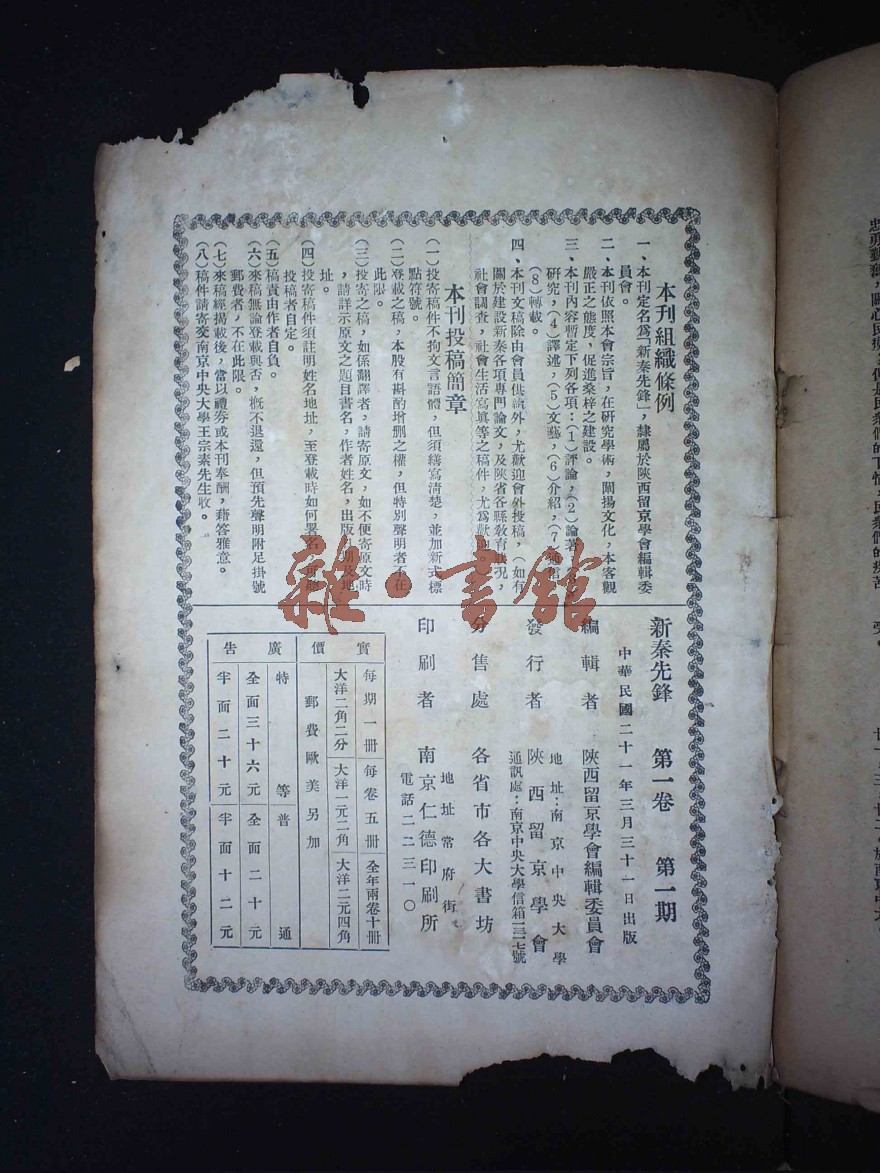 本刋組織條例
一、本刋定名爲「新秦先鋒」，隸屬於陝西留京學會編輯委
員會。
二、本刋依照本會宗旨，在硏究學術，闡揚文化，本客觀
嚴正之態度，促進桑梓之建設。
三、本刋內容暫定下列各項：（1）評論，（2）論著，
硏究，（4）譯述，（5）文藝，（6）介紹，（7）通信
（8）轉載。
四、本刋文稿除由會員供給外，尤歡迎會外投稿，（如有
關於建設新秦各項專門論文，及陝省各縣敎育狀况，
社會調查，社會生活寫眞等之稿件，尤爲歡
本刋投稿簡章
（一）投寄稿件不拘文言語體，但須繕寫清楚，並加新式標
點符號。
（二）登載之稿，本股有斟酌增删之權，但特别聲明者不在
此限。
（三）投寄之稿，如係翻譯者，請寄原文，如不便寄原文時
，請詳示原文之題目書名，作者姓名，出版日期及地
址。
（四）投寄稿件須註明姓名地址，至登載時如何署名
投稿者自定。
（五）稿責由作者自負。
（六）來稿無論登載與否，槪不退還，但預先聲明附足掛號
郵費者，不在此限。
（七）來稿經揭載後，當以禮券或本刋奉酬，藉答雅意。
（八）稿件請寄交南京中央大學王宗素先生收。
新秦先鋒 第一卷 第一期
中華民國二十一年三月三十一日出版
編輯者 陝西留京學會編輯委員會
地址：南京中央大學
發行者 陝西留京學會
通訊處：南京中央大學信箱一三七號
分售處 各省市各大書坊
地址常府街
印刷者 南京仁德印刷所
電話二二三一〇
實價
每期一册 每卷五册 全年兩卷十册
大洋二角二分 大洋一元二角 大洋二元四角
郵費歐美另加
廣告
特等 普通
全面三十六元 全面二十元
半面二十元 半面十二元
雜·書館